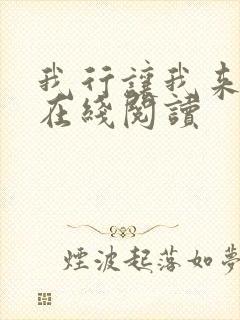 我行讓我来
在綫閱讀
煙波起落如夢